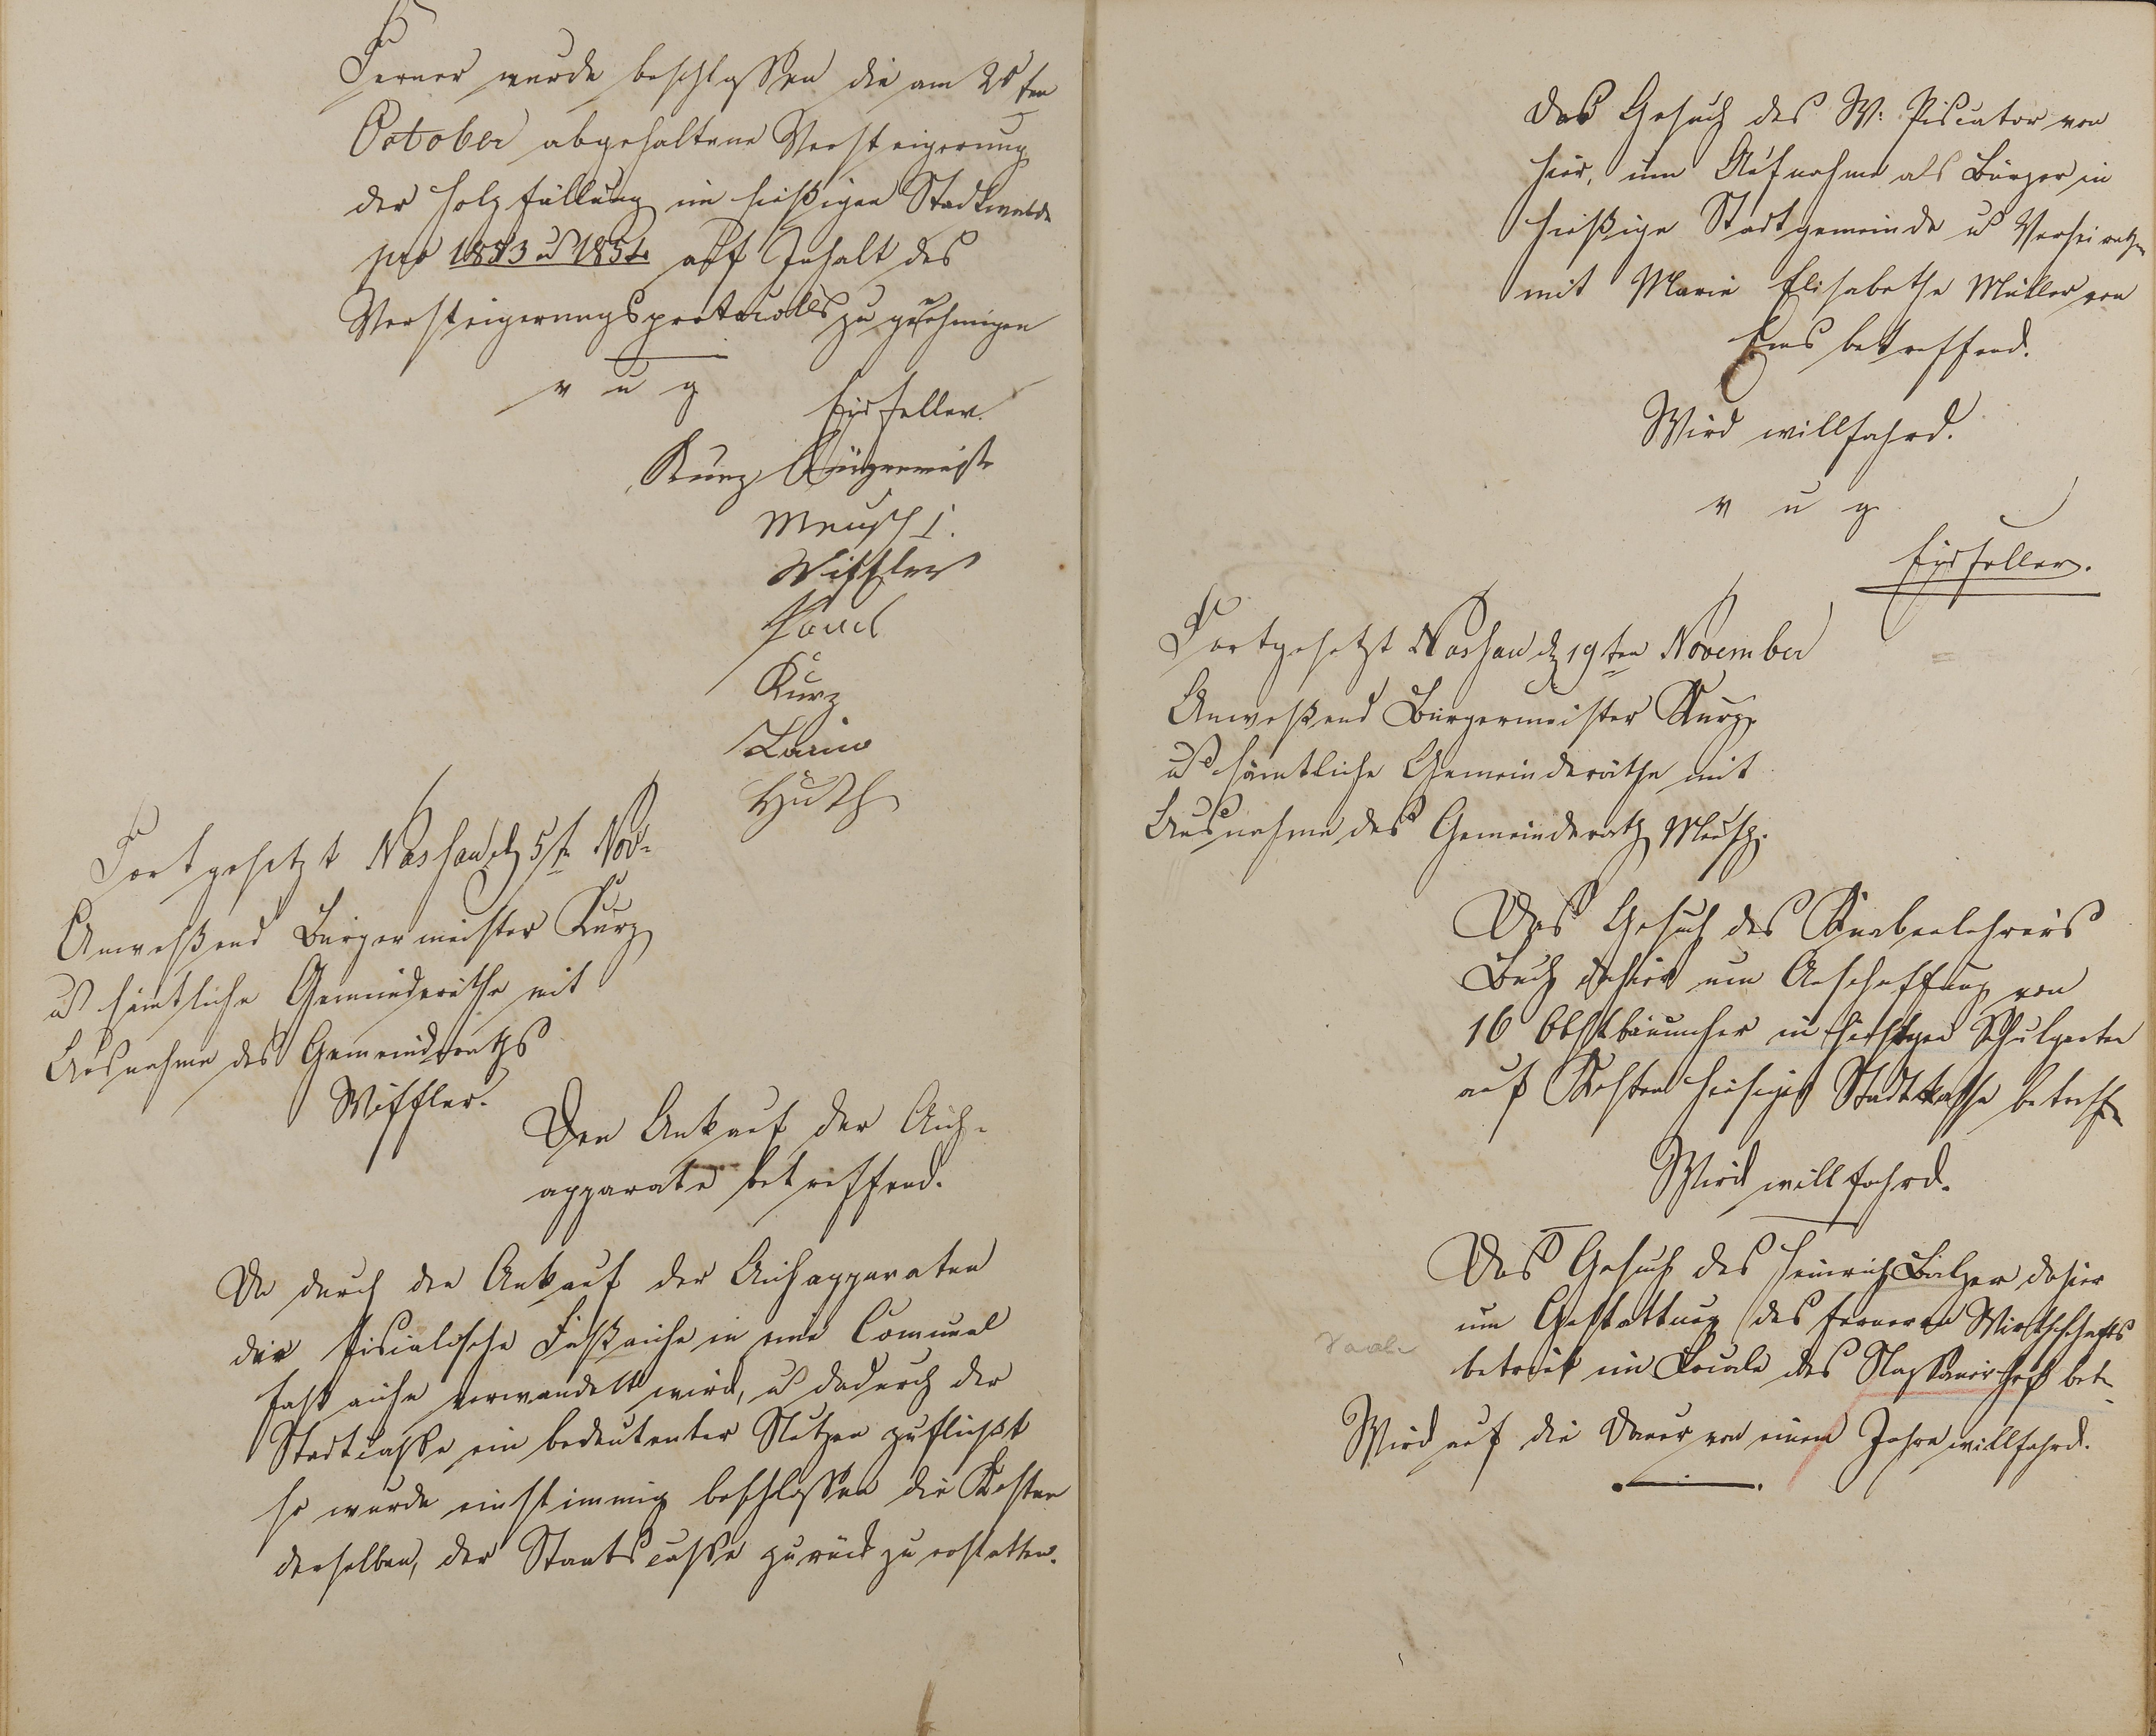 Ferner wurde beschlossen die am 28ten
October abgehaltene Versteigerung
der Holzfällung im hießigen Stadtwalde
pro 1853 u 1854 auf Inhalt des
Versteigerungsprotocolls zu genehmigen
v u g
Kurz Bürgermeister
Meusch I.
Wiffler
Paul
Kurz
Huth
Fortgesetzt Nassau d 5t Nov.
Anweßend Bürgermeister Kurz
u sämtliche Gemeinderäthe mit
Ausnahme des Gemeindraths
Wiffler.
Den Ankauf der Aich-
apparate betreffend.
Da durch den Ankauf der Aichapparaten
die fiscalische Faßaiche in eine Comunal
faßaiche verwandelt wird, u dadurch der
Stadtcasse ein bedeutenter Nutzen zufließt
so wurde einstimmig beschlossen die Kosten
derselben, der Staatscasse zurück zu erstatten.
Das Gesuch des W: Piscator von
hier, um Aufnahme als Bürger in
hießige Stadtgemeinde u Verheirathg
mit Marie Elisabethe Müller von
Ems betreffend.
Wird willfahrd.
v u g
Fortgesetzt Nassau d 19ten November
Anweßend Bürgermeister Kurz
u sämtliche Gemeinderäthe mit
Ausnahme des Gemeinderath Meusch.
Das Gesuch des Knabenlehrers
Buch dahier um Anschaffung von
16 Obstbäumcher in hiesigen Schulgarten
auf Kosten hiesiger Stadtkasse betreff
Wird willfahrd.
Das Gesuch des Heinrich Balzer dahier
um Gestattung des ferneren Wirthschafts
betrieb im Locale des Nassauer Hof betr.
Wird auf die Dauer von einem Jahre willfahrd.